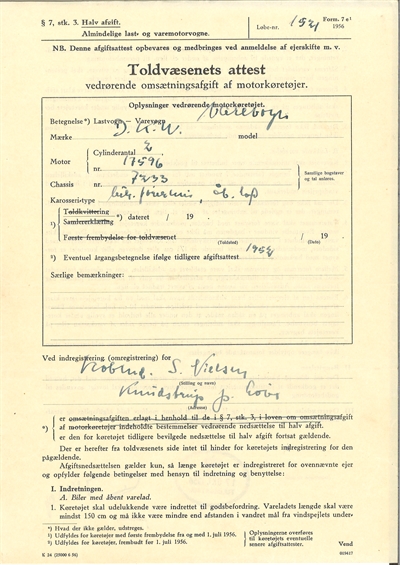 § 7, stk. 3. Halv afgift.
Almindelige last- og varemotorvogne.
Løbe-nr.
Form. 7 e¹
1956
NB. Denne afgiftsattest opbevares og medbringes ved anmeldelse af ejerskifte m. v.
Toldvæsenets attest
vedrørende omsætningsafgift af motorkøretøjer.
Oplysninger vedrørende motorkøretøjet.
Betegnelse*) Lastvogn — Varevogn Varevogn
Mærke D.K.W. model
Motor
Cylinderantal 2
nr. 17596
Chassis nr. 7233
Samtlige bogstaver og tal anføres.
Karosseri-type
¹)
Toldkvittering
Samleerklæring
*) dateret / 19
Første frembydelse for toldvæsenet / 19
(Toldsted) (Dato)
²) Eventuel årgangsbetegnelse ifølge tidligere afgiftsattest
Særlige bemærkninger:
Ved indregistrering (omregistrering) for
Købmd. S. Nielsen
(Stilling og navn)
Knudstrup p.
(Adresse)
*)
er omsætningsafgiften erlagt i henhold til de i § 7, stk. 3, i loven om omsætningsafgift
af motorkøretøjer indeholdte bestemmelser vedrørende nedsættelse til halv afgift.
er den for køretøjet tidligere bevilgede nedsættelse til halv afgift fortsat gældende.
Der er herefter fra toldvæsenets side intet til hinder for køretøjets indregistrering for den
pågældende.
Afgiftsnedsættelsen gælder kun, så længe køretøjet er indregistreret for ovennævnte ejer
og opfylder følgende betingelser med hensyn til indretning og benyttelse:
I. Indretningen.
A. Biler med åbent varelad.
1. Køretøjet skal udelukkende være indrettet til godsbefordring. Vareladets længde skal være
mindst 150 cm og må ikke være mindre end afstanden i vandret mål fra vindspejlets under-
*) Hvad der ikke gælder, udstreges.
¹) Udfyldes for køretøjer med første frembydelse fra og med 1. juli 1956.
²) Udfyldes for køretøjer, frembudt før 1. juli 1956.
Oplysningerne overføres
til køretøjets eventuelle
senere afgiftsattester.
Vend
K 24 (25000 6 56)